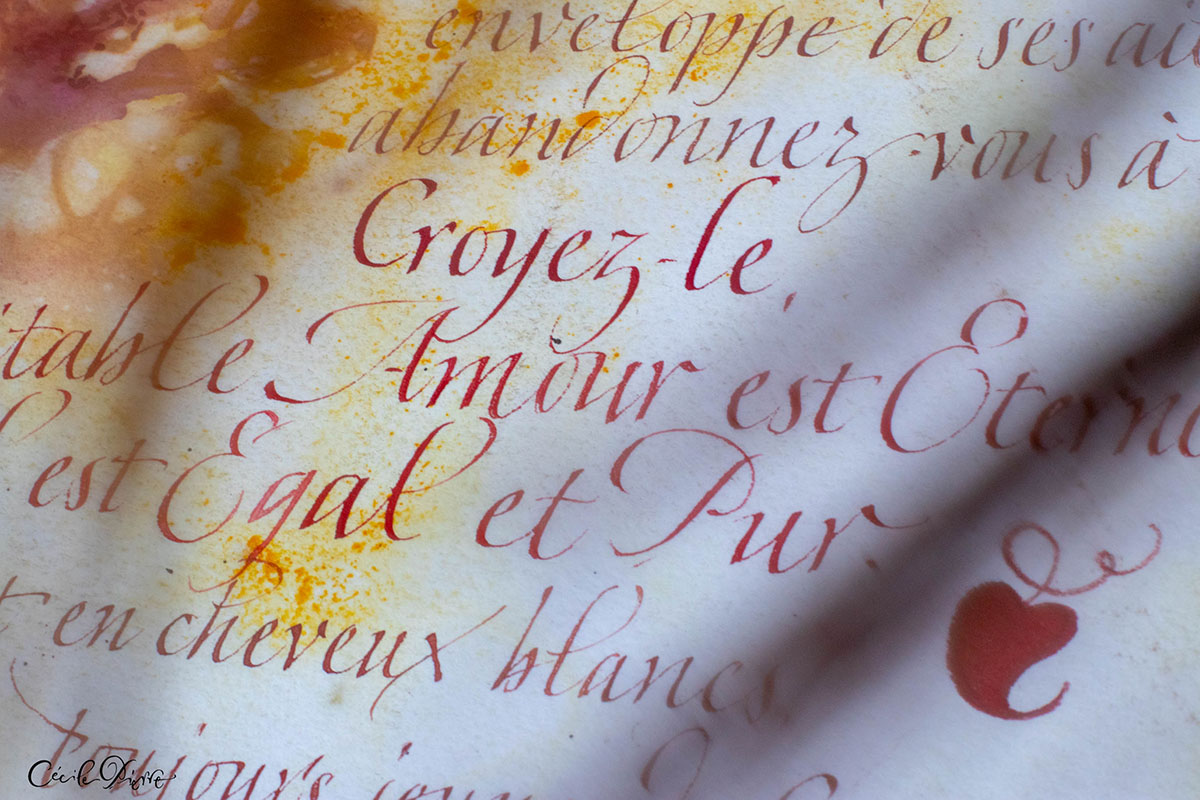 enveloppe de ses ail
abandonnez-vous à
Croyez-le,
itable Amour est Éterne
est Égal et Pur.
t en cheveux blancs
toujours
Cécile Pierre